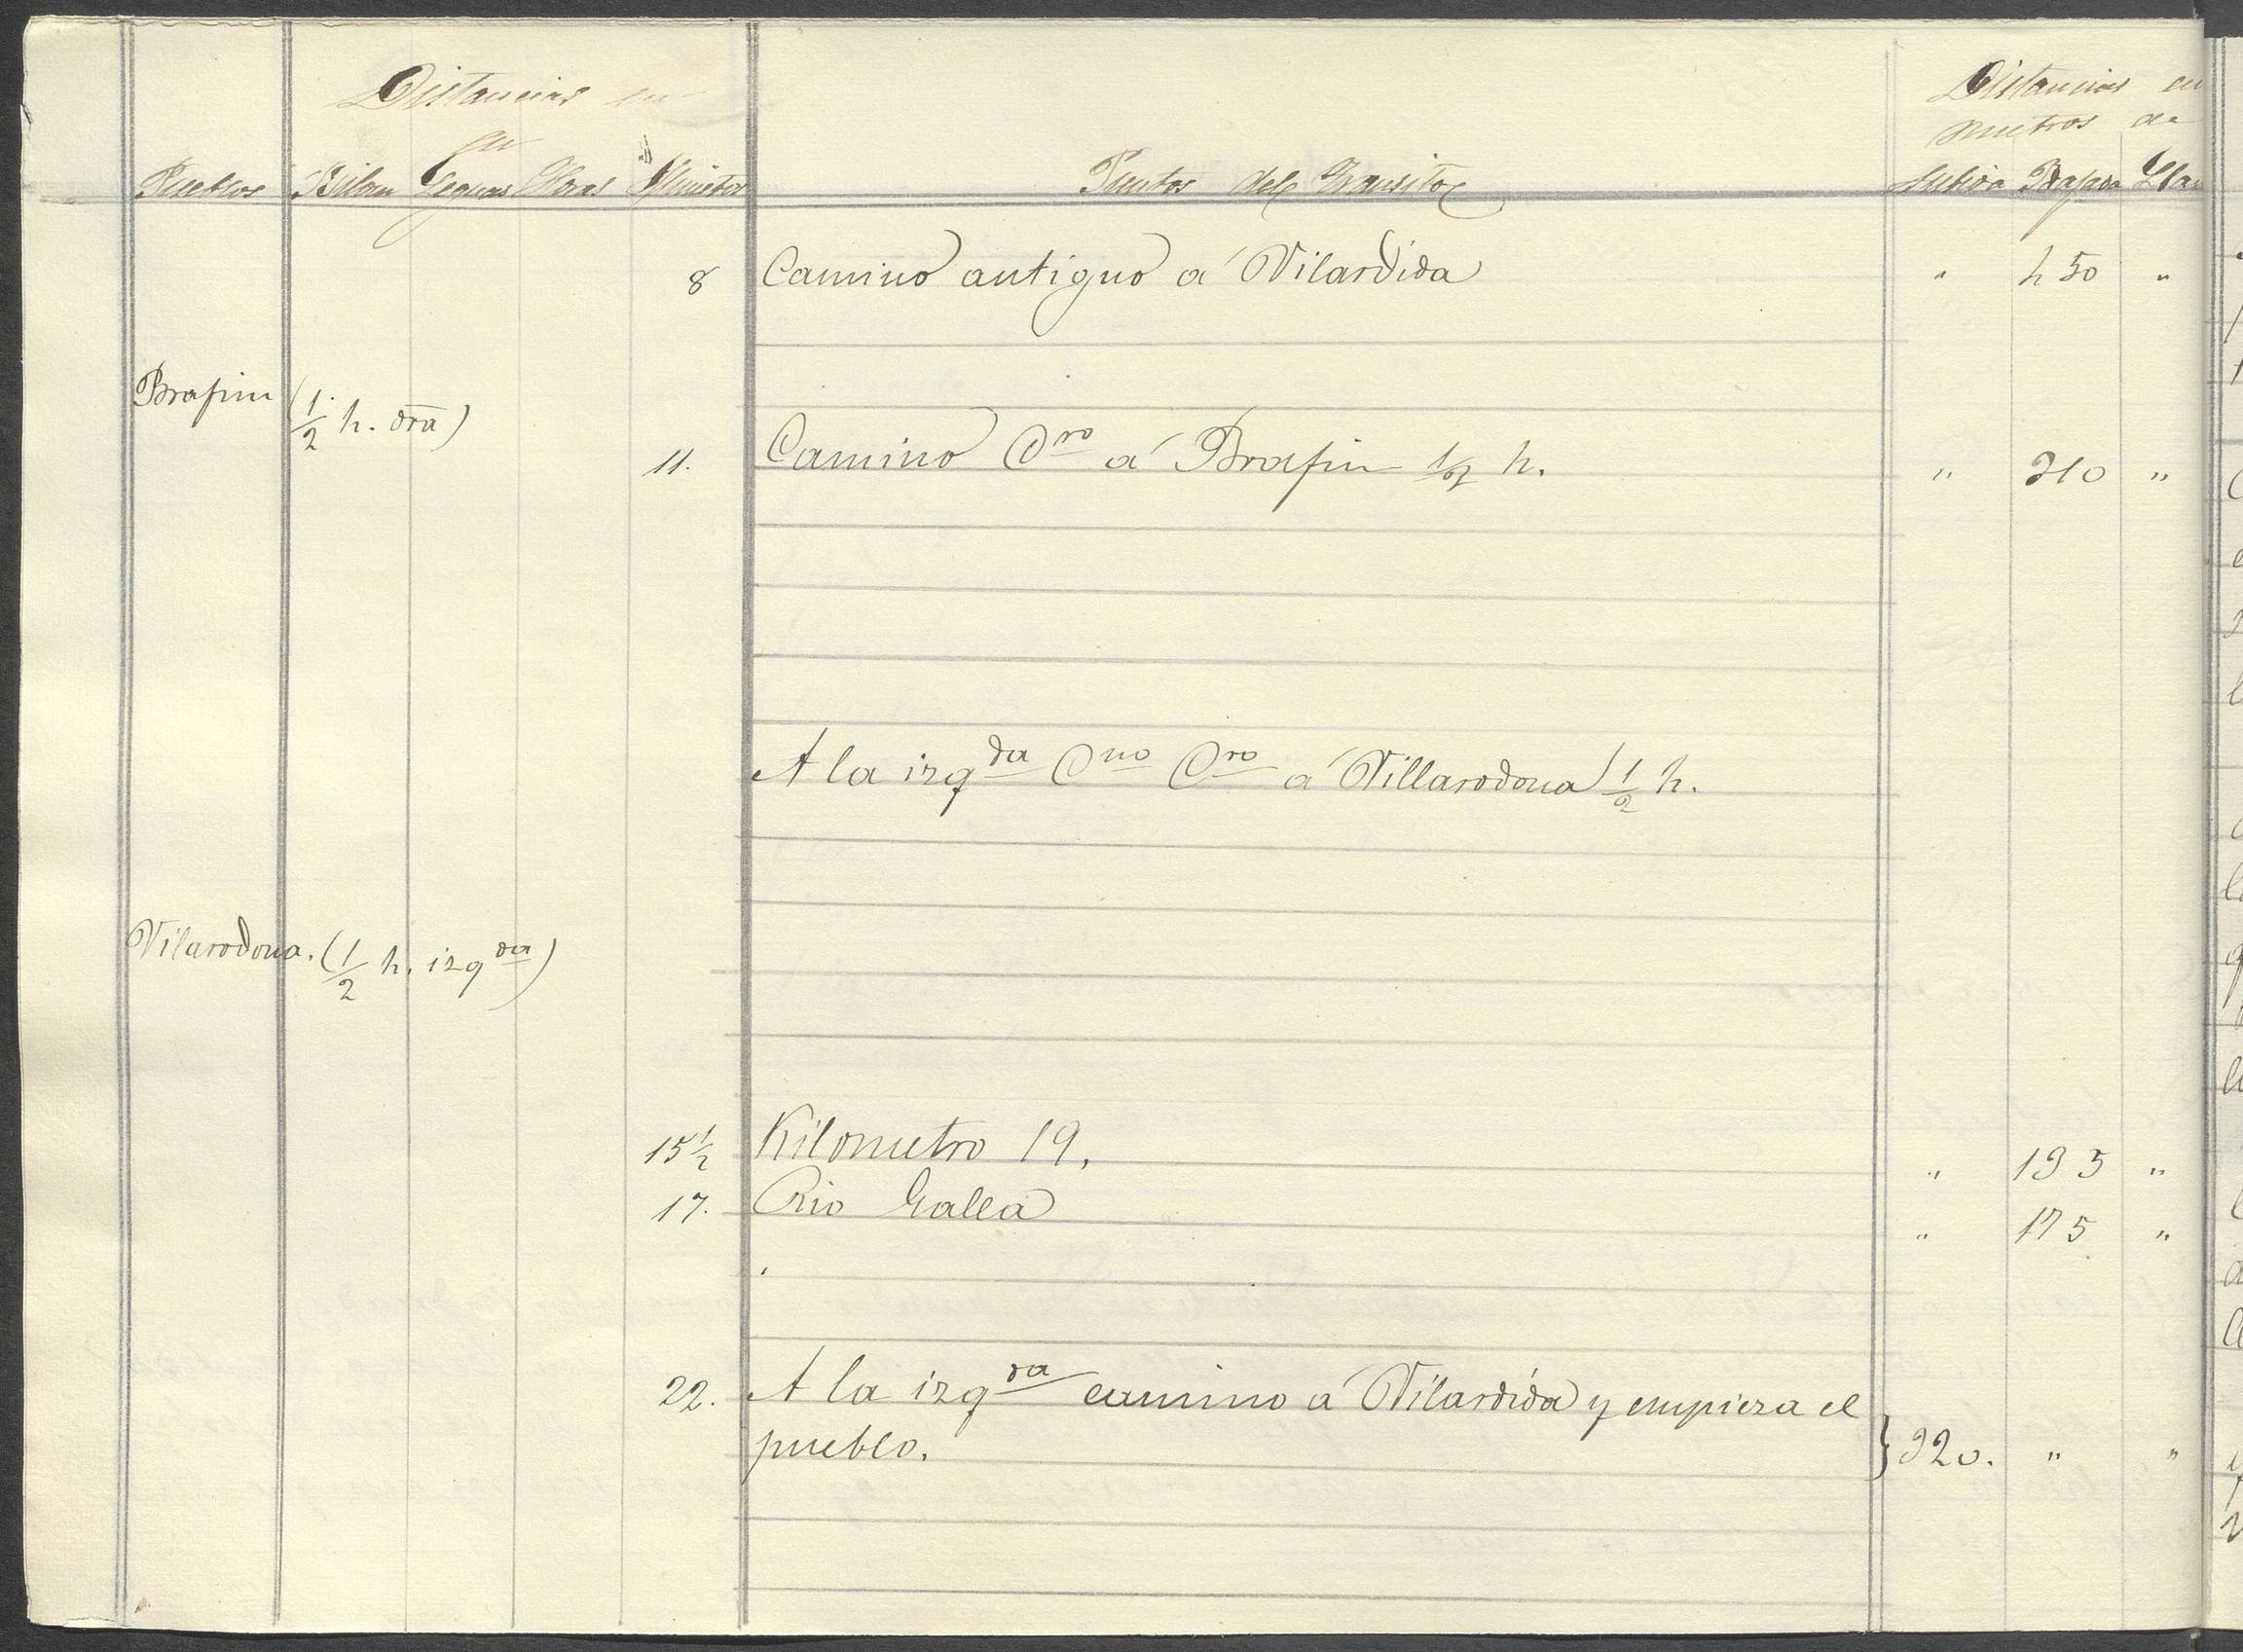 Distancias en
en
Distancias en
metros de
Pueblos Kilom Leguas Horas Minutos Puntos del Transito Subida Bajada Llan
8 Camino antiguo á Vilardida " 450 "
Brafim (1/2 h. dra)
11. Camino Cro á Brafim 1/2 h. " 310 "
A la izqda Cno Cro á Villarodona 1/2 h.
Vilarodona. (1/2 h. izqda)
15 1/2 Kilometro 19. " 195 "
17. Rio Galla " 175 "
22. A la izqda camino á Vilardida y empieza el
pueblo. } 920. " "